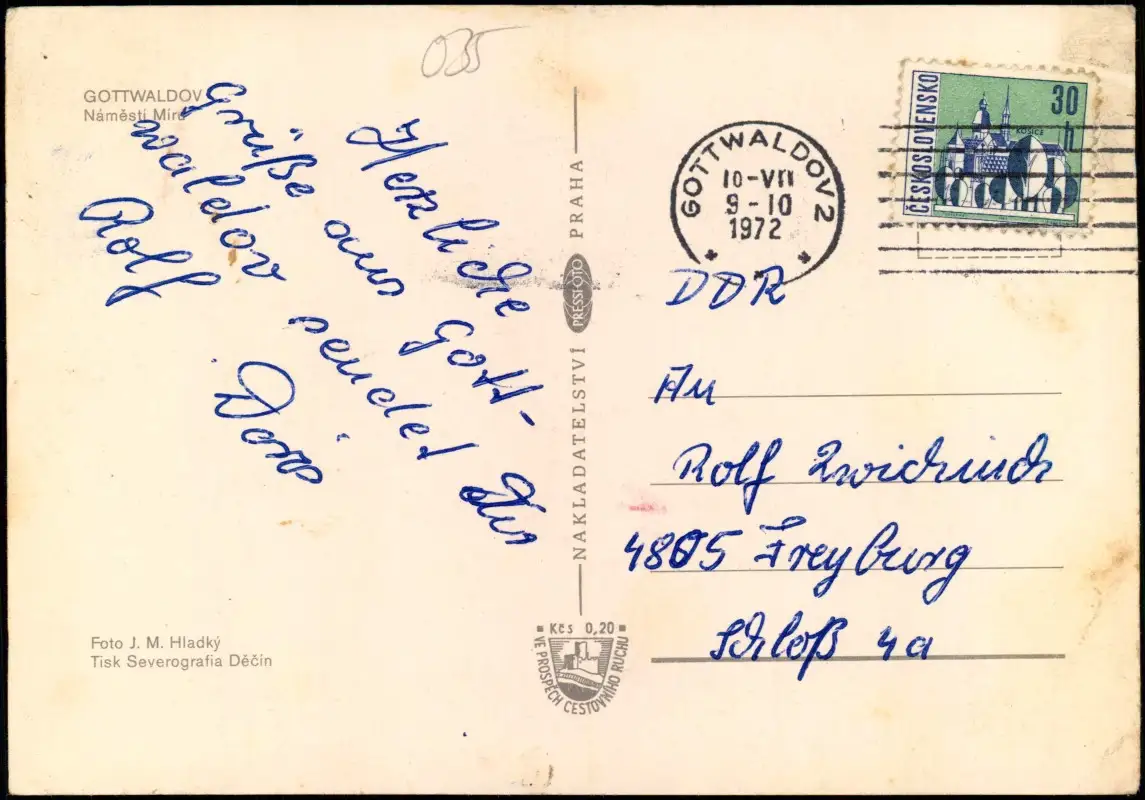 035
GOTTWALDOV
Náměstí Míru
Herzliche
Grüße aus Gott-
waldov sendet Dir
Rolf
Doris
Foto J. M. Hladký
Tisk Severografia Děčín
NAKLADATELSTVÍ PRESSFOTO PRAHA
Kčs 0,20
VE PROSPĚCH CESTOVNÍHO RUCHU
GOTTWALDOV 2
10-VII
9-10
1972
ČESKOSLOVENSKO
30
h
KOŠICE
DDR
An
Rolf
4805 Freyburg
Schloß 4a